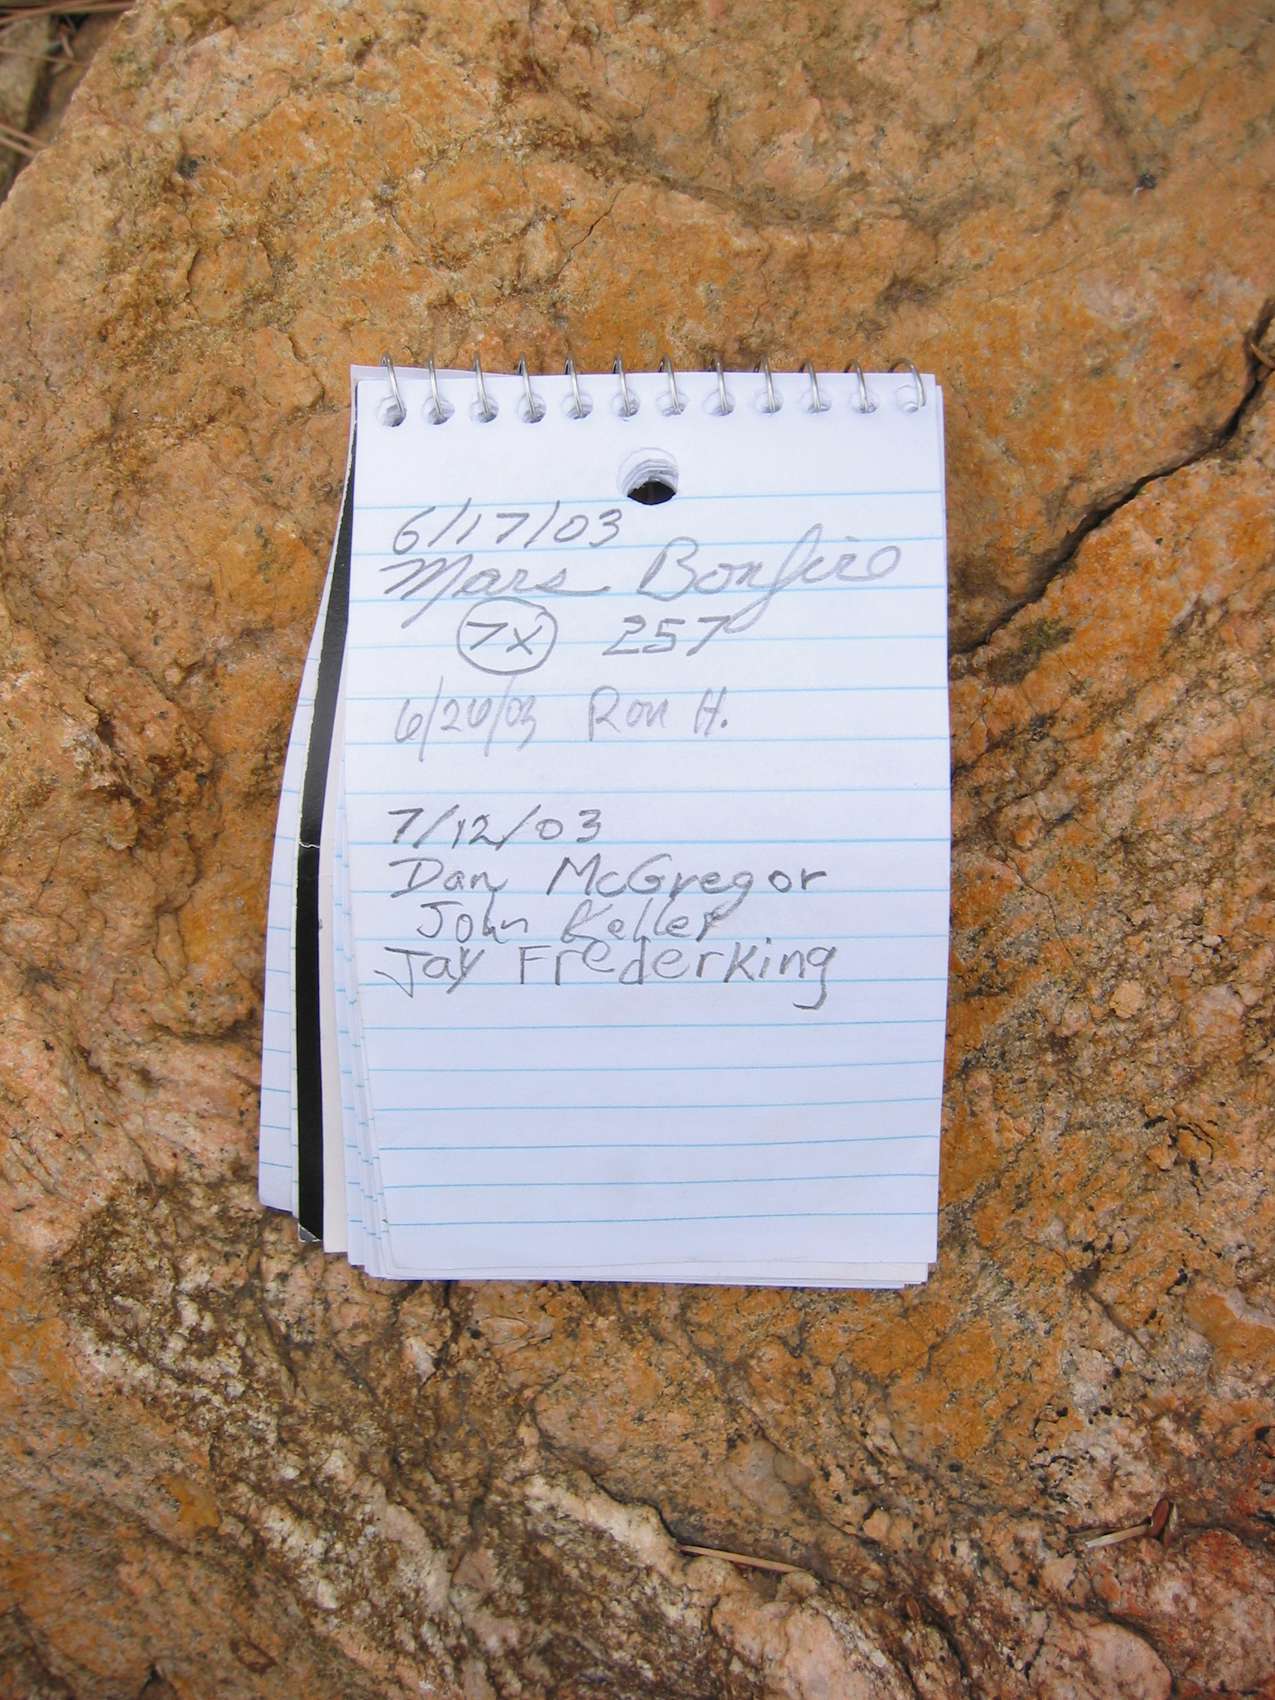 6/17/03
Mars Bonfire
7x 257
6/26/03 Ron H.
7/12/03
Dan McGregor
John Keller
Jay Frederking